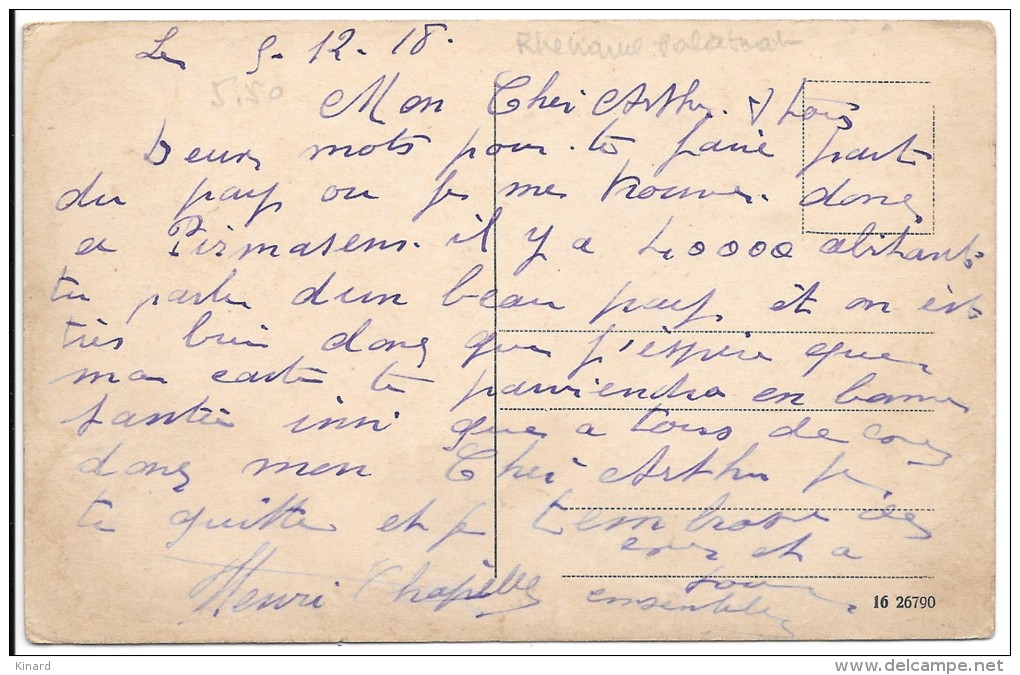 Le 9-12-18. Rhenanie Palatinat
5.50
Mon Cher Arthur. & tous
Deux mots pour te faire part
du pays ou je me trouve. donc
a Pirmasens. il y a 40000 abitants
tu parle dun beau pays et on est
très bien donc que j'éspère que
ma carte te parviendra en bonne
santée insi que a tous de cour
donc mon Cher Arthur je
te quitte et je tembrasse de
cour et a
tous
ensemble
Henri Chapelle
16 26790
Kinard
www.delcampe.net